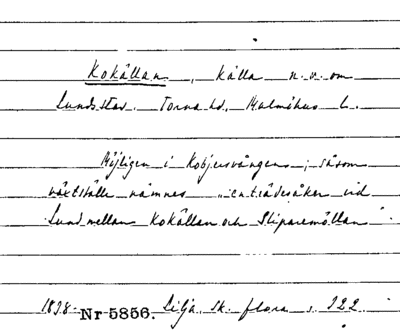 Kokällan, källa n.o. om
Lunds stad. Torna hd. Malmöhus l.
Möjligen i Kobjersvången; såsom
växtställe nämnes "en trädesåker vid
Lund mellan Kokällan och Sliparemöllan"
1838. Nr 5856. Lilja Sk. flora s. 122